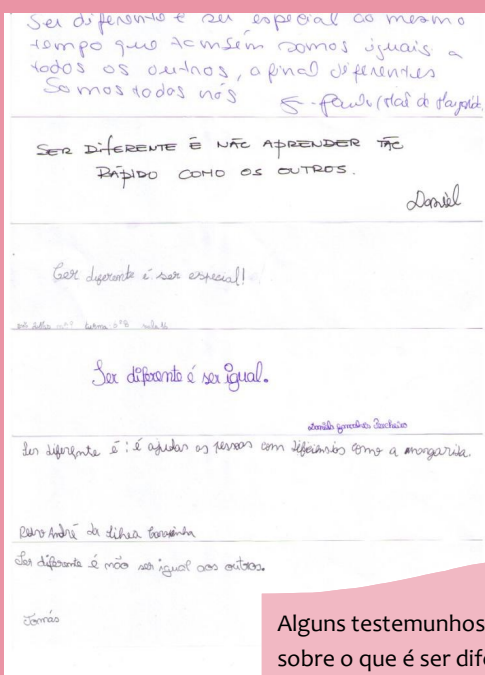 Ser diferente é ser especial ao mesmo
tempo que também somos iguais a
todos os outros, afinal diferentes
Somos todos nós
SER DIFERENTE É NÃO APRENDER TÃO
RÁPIDO COMO OS OUTROS.
Daniel
Ser diferente é ser especial!
Ser diferente é ser igual.
Ser diferente é: é ajudar as pessoas com como a margarida.
Pedro André da
Ser diferente é não ser igual aos outros.
Tomás
Alguns testemunhos
sobre o que é ser dife